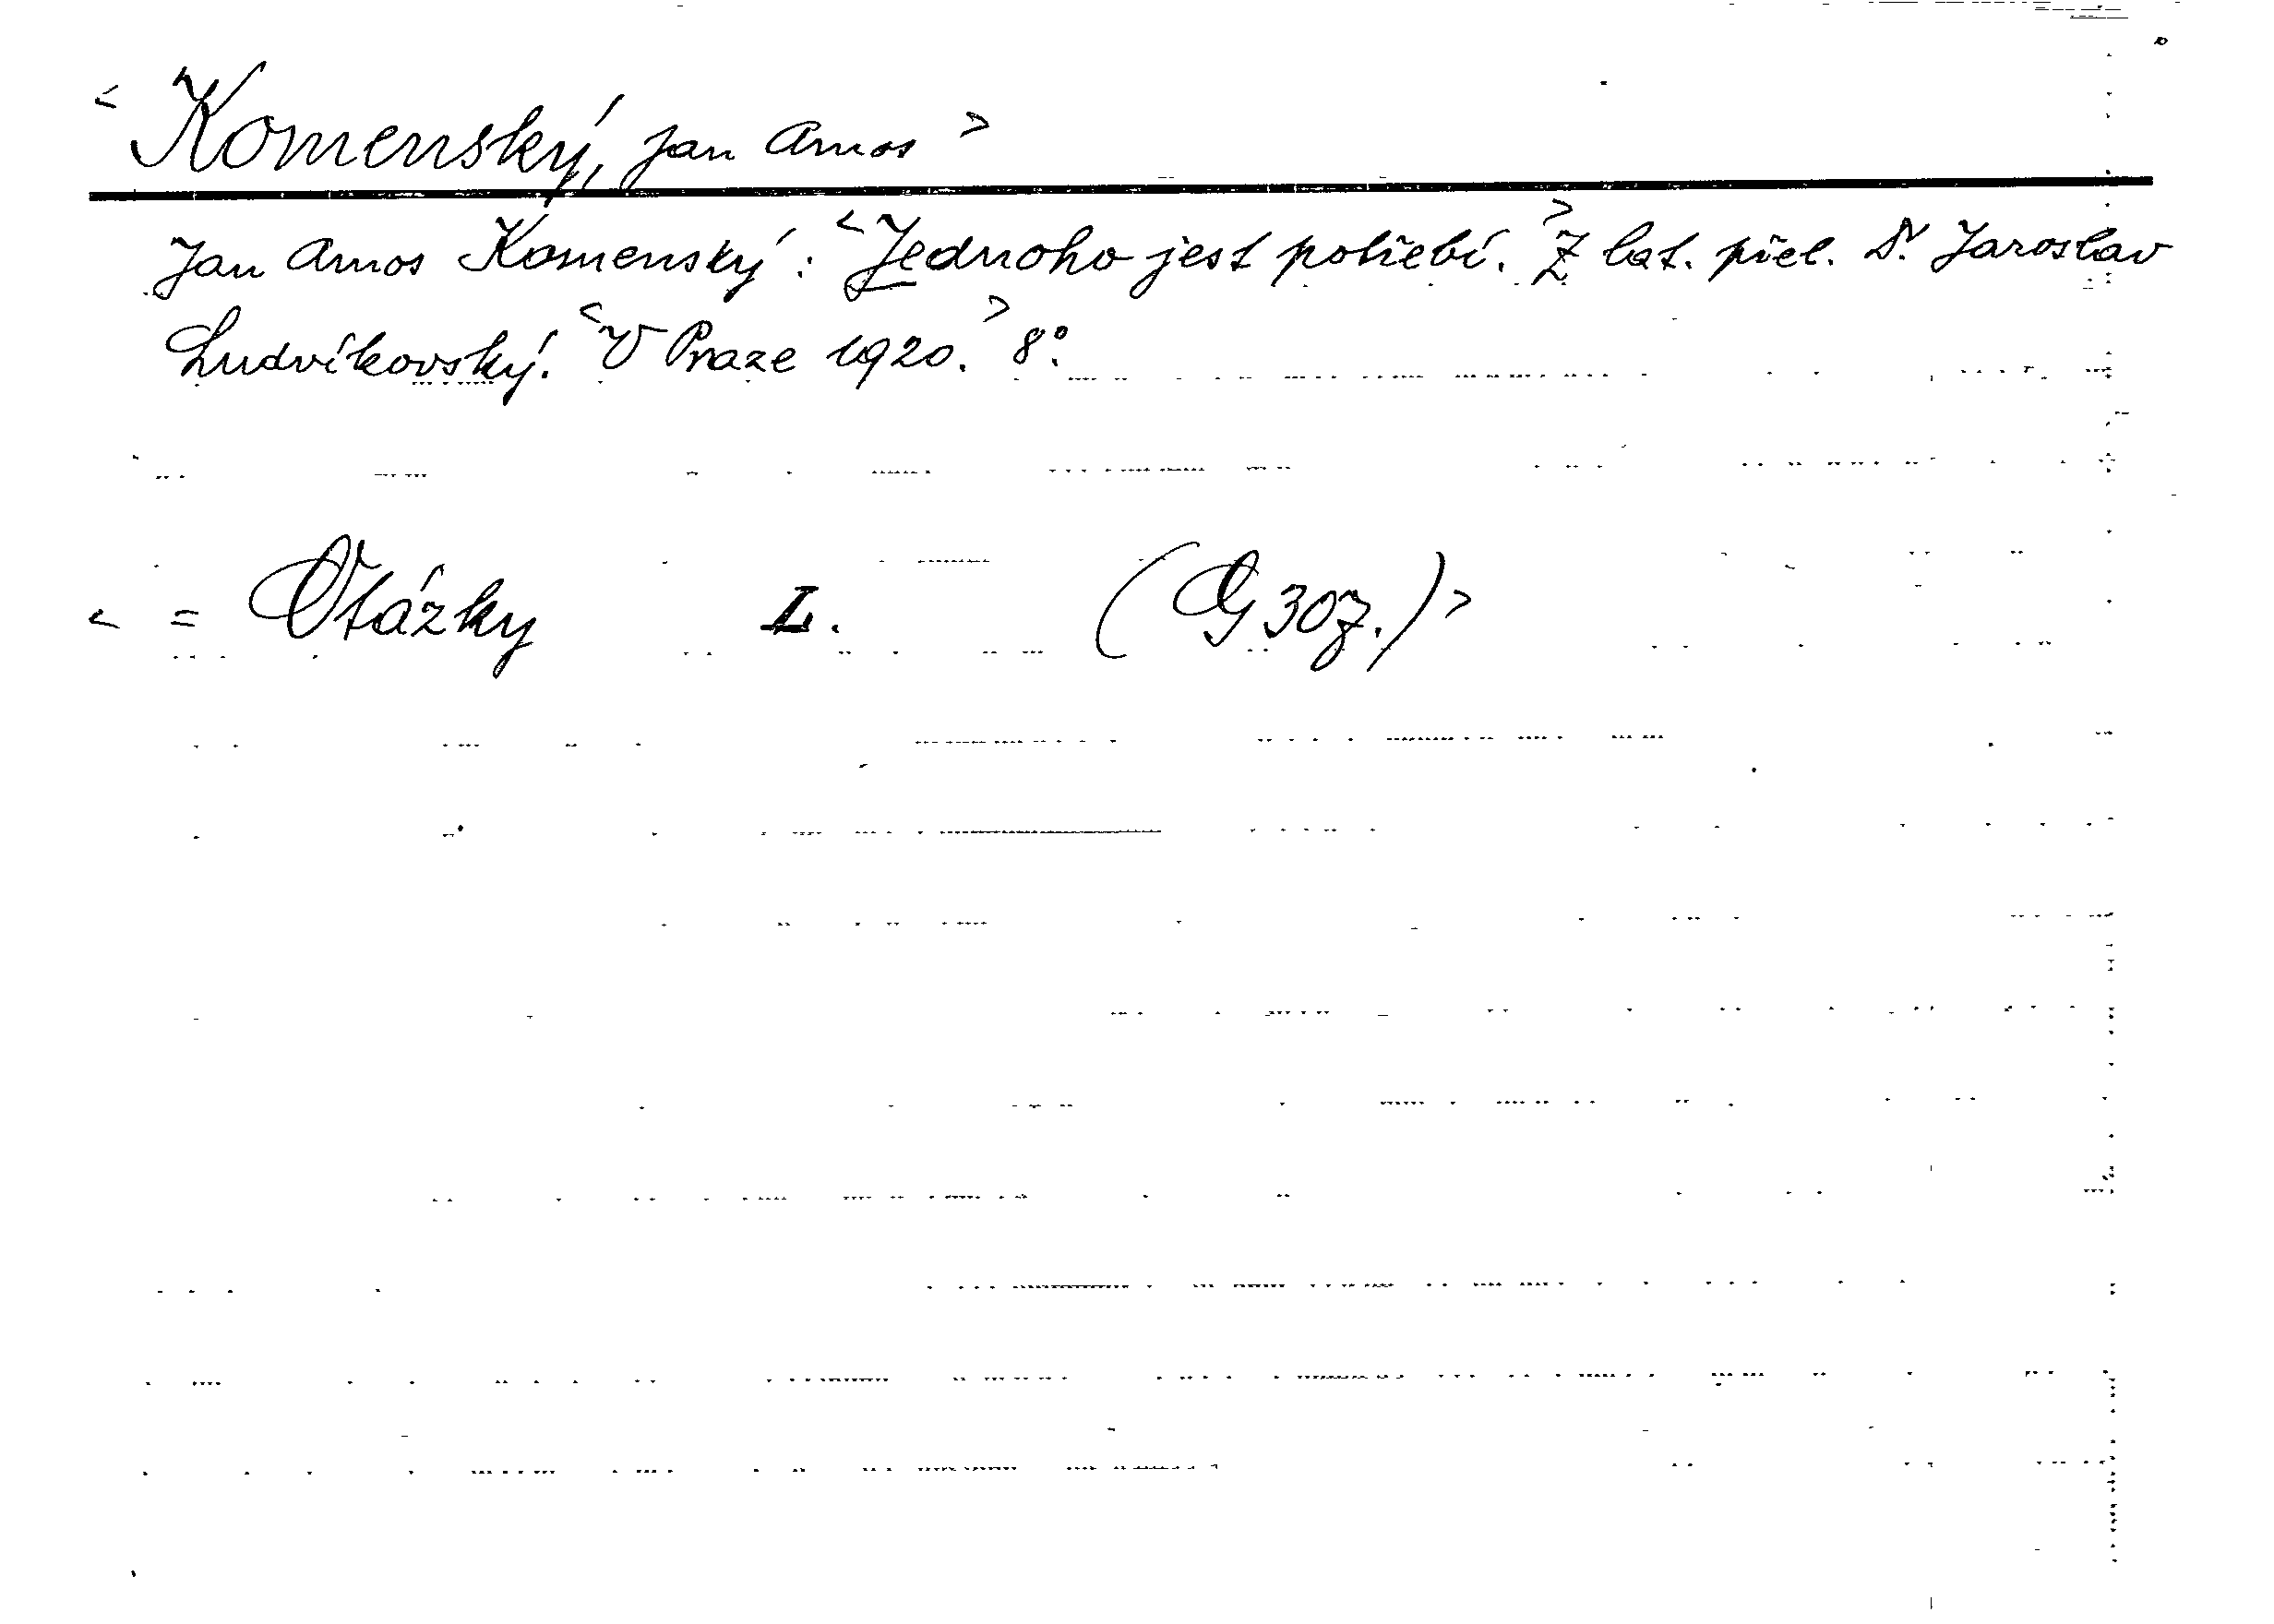 < Komenský, Jan Amos >
Jan Amos Komenský: <Jednoho jest potřebí.> Z lat. přel. Dr. Jaroslav
Ludvíkovský. <V Praze 1920.> 8°.
< = Otázky L. (G 307.) >